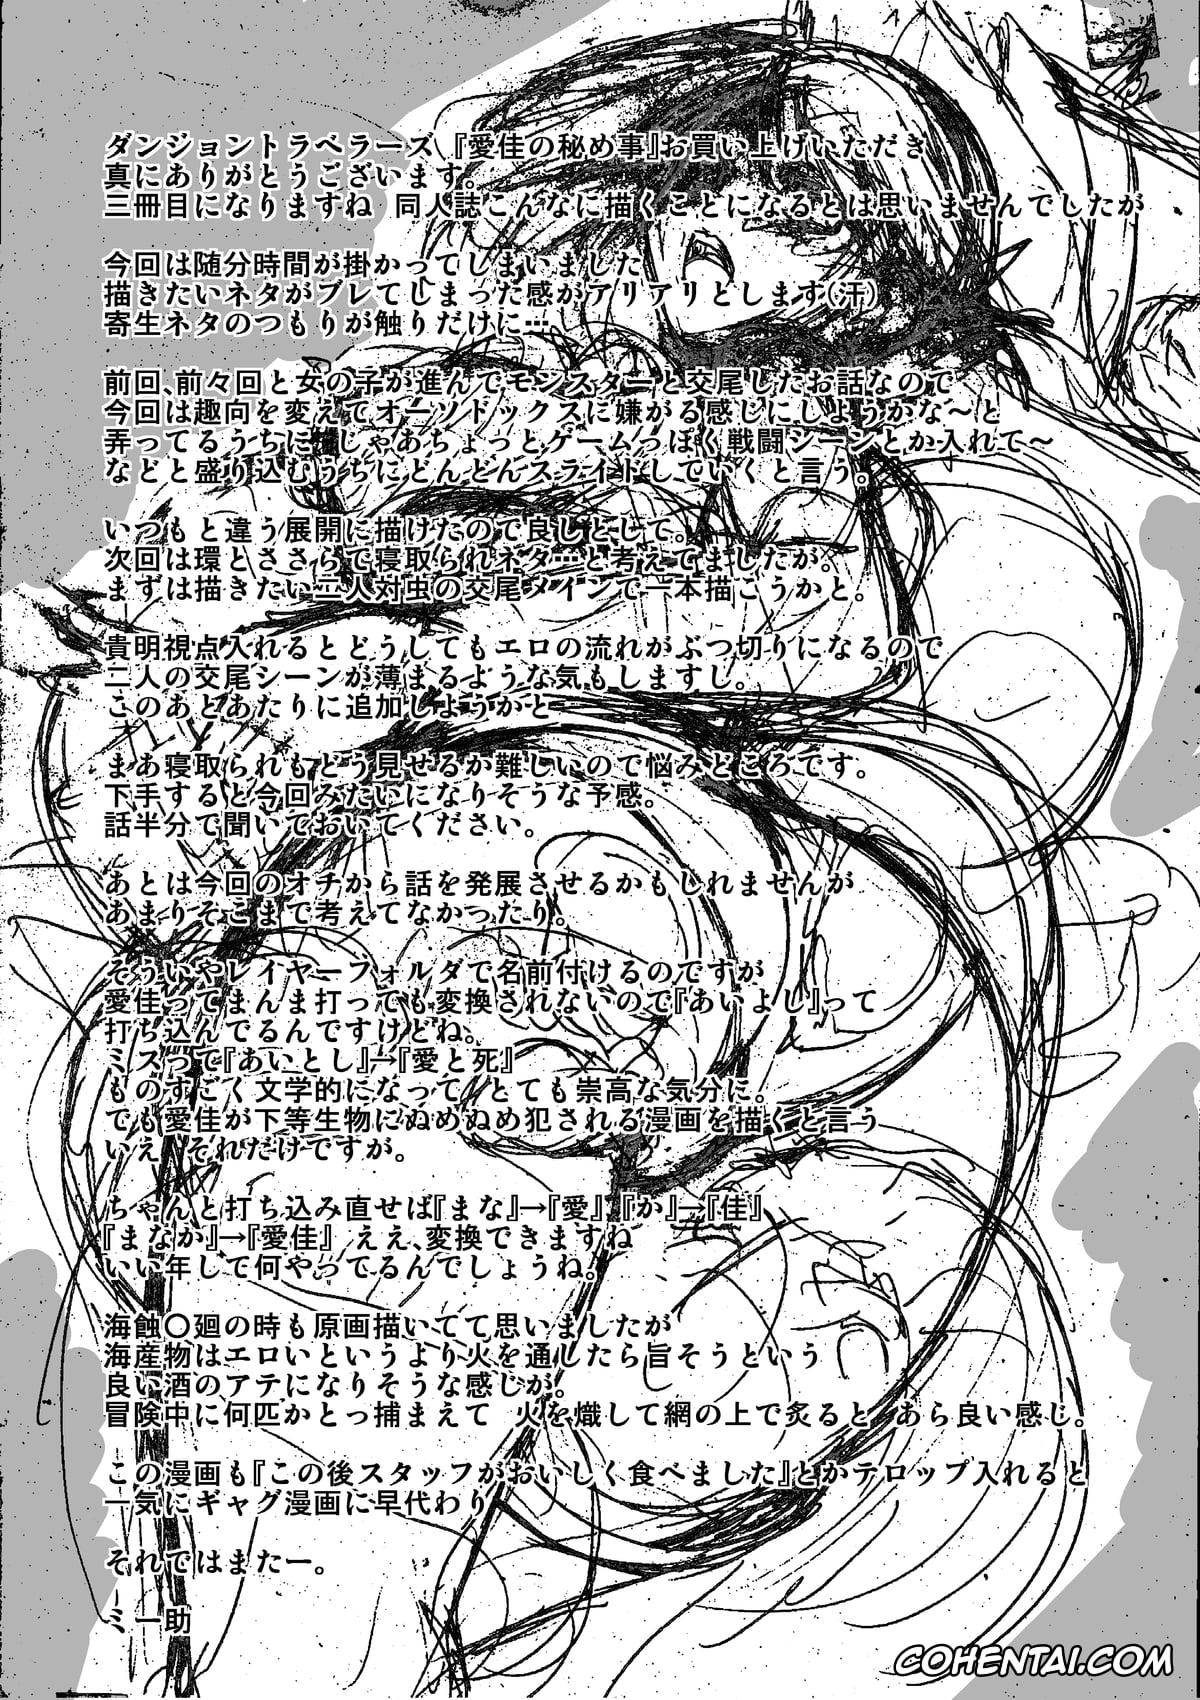 ダンジョントラベラーズ 『愛佳の秘め事』お買い上げいただき
真にありがとうございます。
三冊目になりますね 同人誌こんなに描くことになるとは思いませんでしたが
今回は随分時間が掛かってしまいました
描きたいネタがブレてしまった感がアリアリとします(汗)
寄生ネタのつもりが触りだけに…
前回、前々回と女の子が進んでモンスターと交尾したお話なので
今回は趣向を変えてオーソドックスに嫌がる感じにしようかな～と
弄ってるうちに、じゃあちょっとゲームっぽく戦闘シーンとか入れて～
などと盛り込むうちにどんどんスライドしていくと言う。
いつもと違う展開に描けたので良しとして。
次回は環とささらで寝取られネタ…と考えてましたが。
まずは描きたい二人対虫の交尾メインで一本描こうかと。
貴明視点入れるとどうしてもエロの流れがぶつ切りになるので
二人の交尾シーンが薄まるような気もしますし。
このあとあたりに追加しようかと
まあ寝取られもどう見せるか難しいので悩みどころです。
下手すると今回みたいになりそうな予感。
話半分で聞いておいてください。
あとは今回のオチから話を発展させるかもしれませんが
あまりそこまで考えてなかったり。
そういやレイヤーフォルダで名前付けるのですが
愛佳ってまんま打っても変換されないので『あいよし』って
打ち込んでるんですけどね。
ミスって『あいとし』→『愛と死』
ものすごく文学的になって とても崇高な気分に。
でも愛佳が下等生物にぬめぬめ犯される漫画を描くと言う
いえ それだけですが。
ちゃんと打ち込み直せば『まな』→『愛』、『か』→『佳』
『まなか』→『愛佳』 ええ、変換できますね
いい年して何やってるんでしょうね。
海蝕〇廻の時も原画描いてて思いましたが
海産物はエロいというより火を通したら旨そうという
良い酒のアテになりそうな感じが。
冒険中に何匹かとっ捕まえて 火を熾して網の上で炙ると あら良い感じ。
この漫画も『この後スタッフがおいしく食べました』とかテロップ入れると
一気にギャグ漫画に早代わり
それではまたー。
ミー助
COHENTAI.COM